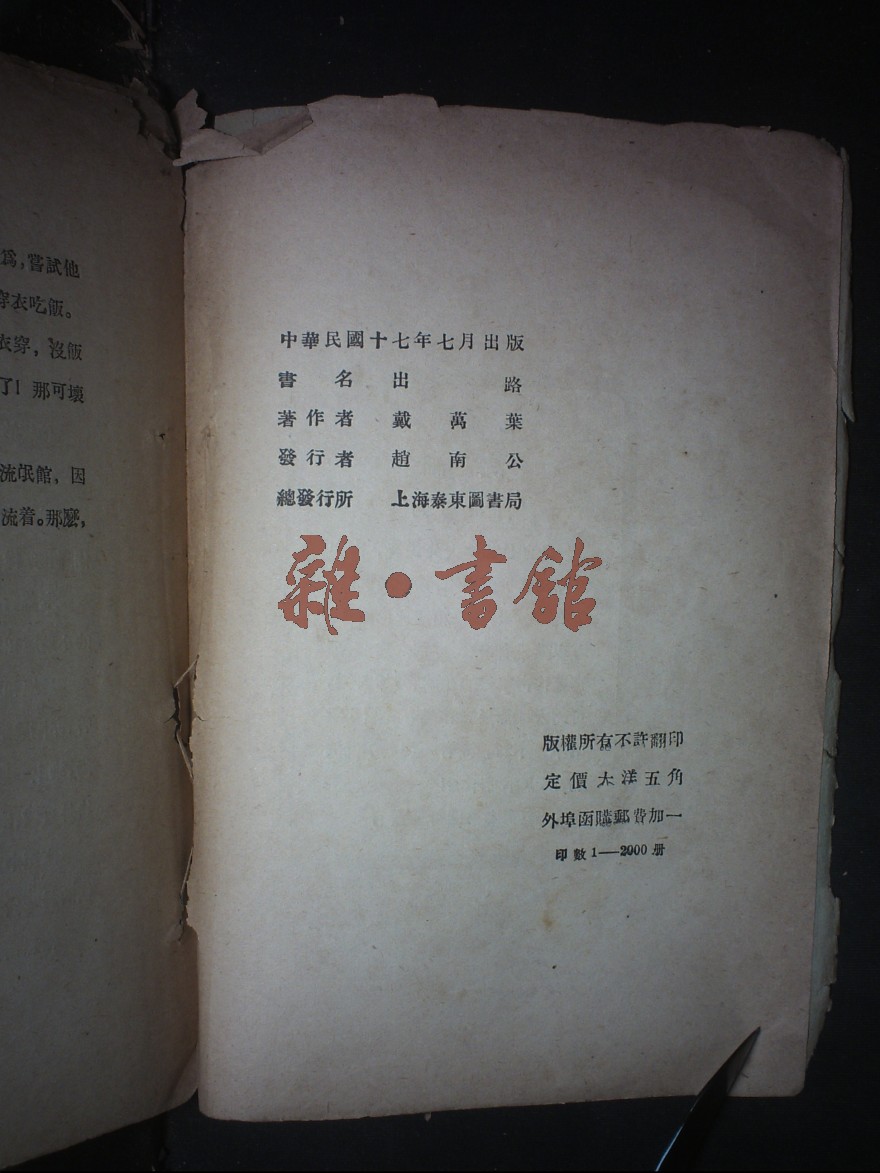 爲，嘗試他
穿衣吃飯。
衣穿，沒飯
了！那可壞
流氓館，因
流着。那麽，
中華民國十七年七月出版
書名 出路
著作者 戴萬葉
發行者 趙南公
總發行所 上海泰東圖書局
雜·書館
版權所有不許翻印
定價大洋五角
外埠函購郵費加一
印數1——2000册